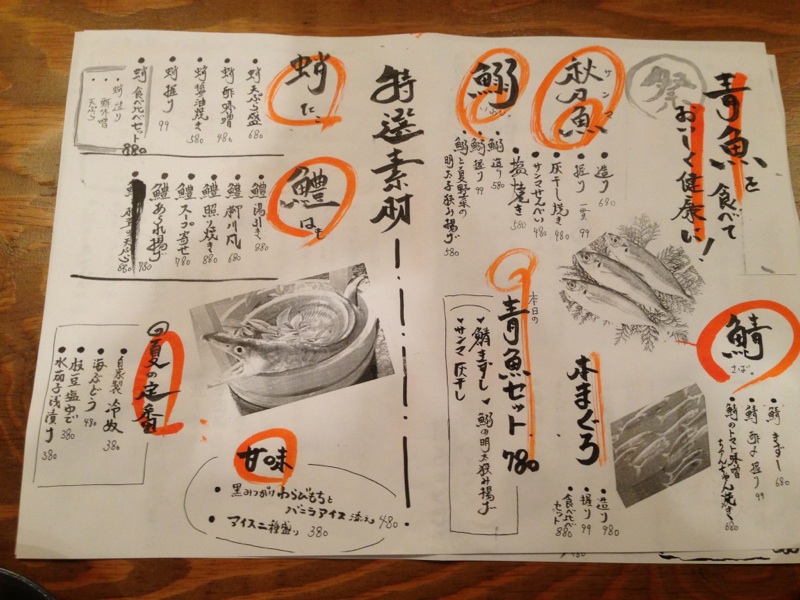 青魚を食べて
おいしく健康に!
祭
サンマ
秋刀魚
造り 680
握り 一貫 99
灰干し焼き 480
サンマせんべい 480
鰯
いわし
塩焼き 580
鰯 造り 580
鰯 握り 99
鰯と夏野菜の
明太子挟み揚げ 580
鯖
さば
鯖 きずし 680
鯖 酢〆握り 99
鯖のトマト味噌
ちゃんちゃん焼き 880
本まぐろ
造り 980
握り 99
食べ比べ
セット 880
本日の
青魚セット 780
鯖きずし
鰯の明太挟み揚げ
サンマ灰干し
特選素材
蛸
たこ
蛸 天ぷら盛 680
蛸 酢味噌 480
蛸 醤油焼き 580
蛸 握り 99
蛸 食べ比べセット 880
蛸 造り
酢味噌
天ぷら
鱧
はも
鱧 湯引き 880
鱧 柳川風 680
鱧 照り焼き 880
鱧 スープ寄せ 780
鱧 あられ揚げ 780
夏の定番
自家製 冷奴 380
海ぶどう 480
枝豆塩ゆで 380
水茄子浅漬け 380
甘味
黒みつがけわらびもちと
バニラアイス添え 480
アイス二種盛り 380